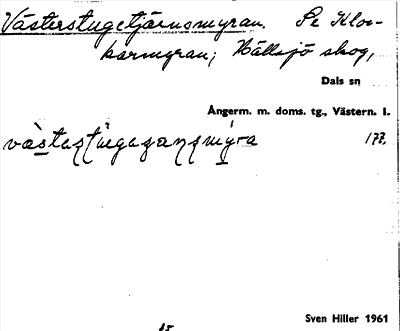 Västerstugetjärnsmyran. Se Kloc-
karmyran; Hällsjö skog,
Dals sn
Ångerm. m. doms. tg., Västern. I.
177.
Sven Hiller 1961
15